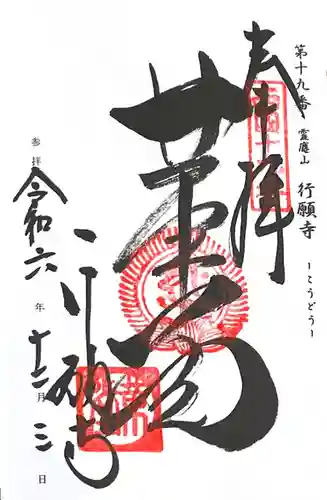 第十九番 霊麀山 行願寺 ーこうどうー
奉拝
革堂
行願寺
参拝 令和六年十二月三日